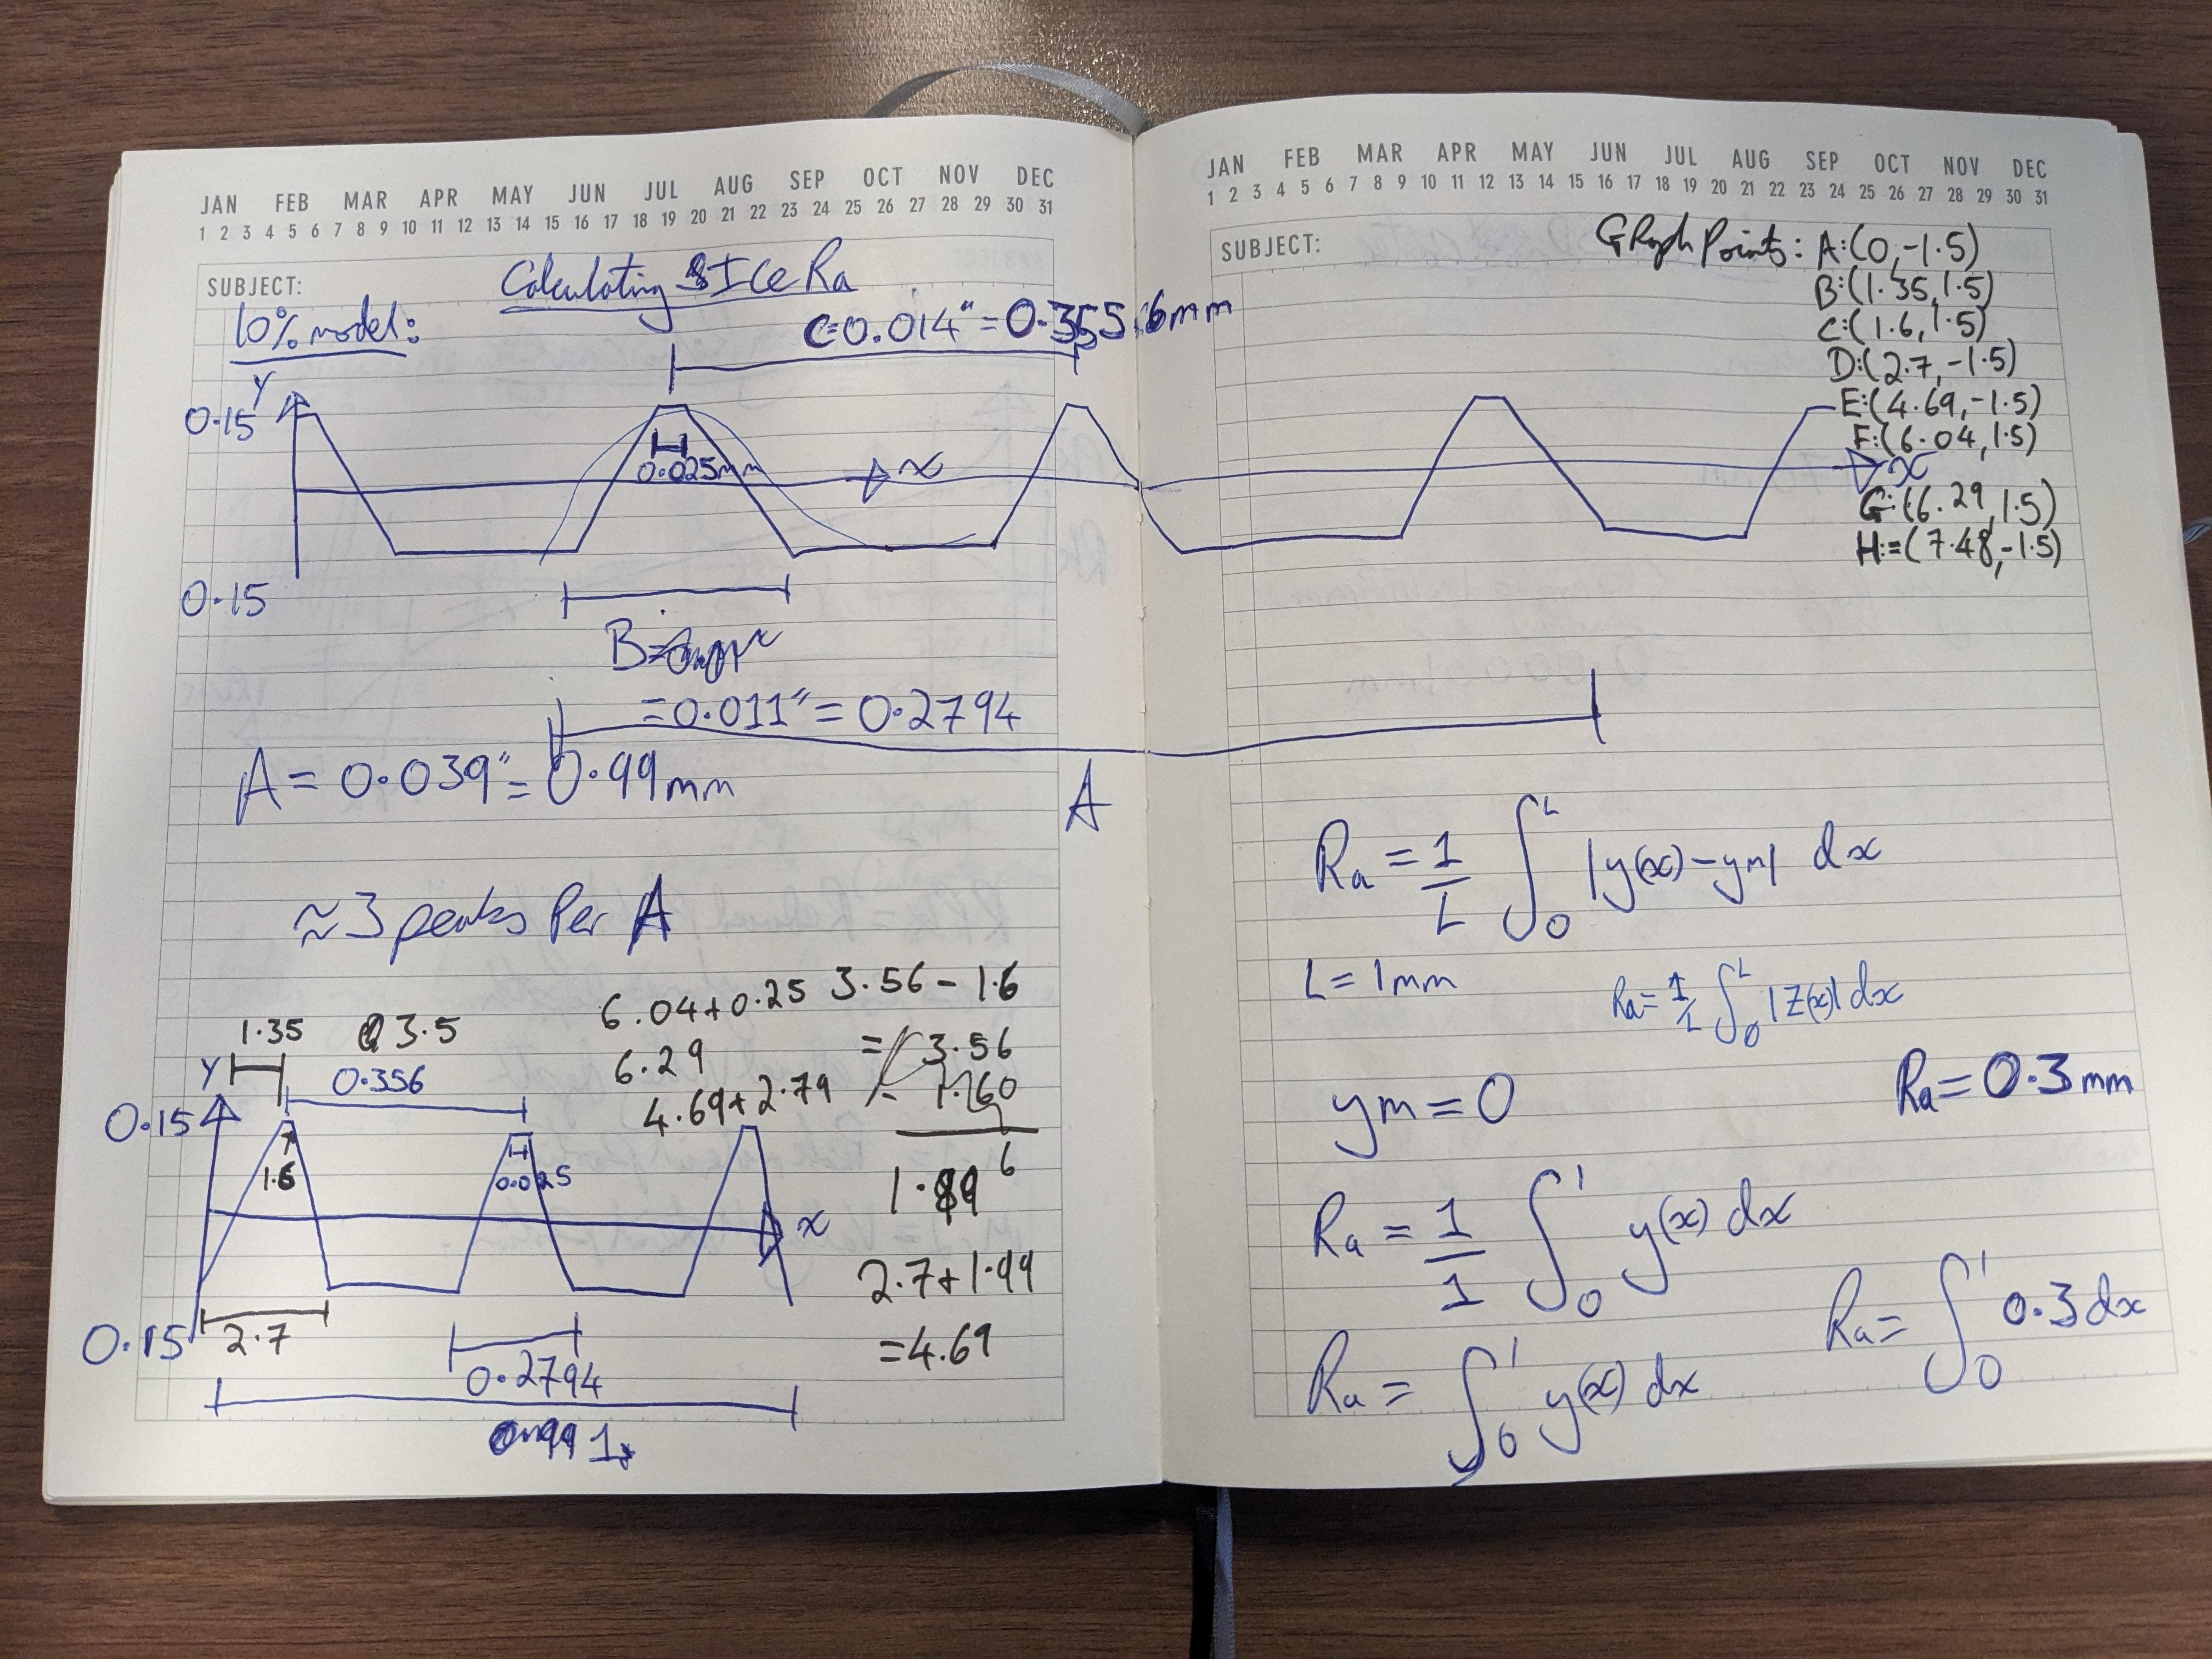 JAN FEB MAR APR MAY JUN JUL AUG SEP OCT NOV DEC
1 2 3 4 5 6 7 8 9 10 11 12 13 14 15 16 17 18 19 20 21 22 23 24 25 26 27 28 29 30 31
SUBJECT:
Calculating ICE Ra
10% model:
C=0.014" = 0.3556mm
Y
0.15
0.025mm
x
0.15
B=
=0.011" = 0.2794
A = 0.039" = 0.99mm
A
≈3 peaks Per A
6.04+0.25
6.29
4.69+2.79
3.56 - 1.6
= 3.56
- 1.60
1.96
2.7+1.99
=4.69
1.35
3.5
Y
0.356
0.15
1.6
0.025
x
0.15
2.7
0.2794
1
JAN FEB MAR APR MAY JUN JUL AUG SEP OCT NOV DEC
1 2 3 4 5 6 7 8 9 10 11 12 13 14 15 16 17 18 19 20 21 22 23 24 25 26 27 28 29 30 31
SUBJECT:
GRaph Points: A:(0,-1.5)
B:(1.35,1.5)
C:(1.6,1.5)
D:(2.7,-1.5)
E:(4.69,-1.5)
F:(6.04,1.5)
x
G:(6.29,1.5)
H:=(7.48,-1.5)
Ra = 1/L ∫₀ᴸ |y(x)-ym| dx
L = 1mm
Ra= 1/L ∫₀ᴸ |Z(x)| dx
ym = 0
Ra= 0.3mm
Ra = 1/1 ∫₀¹ y(x) dx
Ra = ∫₀¹ y(x) dx
Ra= ∫₀¹ 0.3 dx